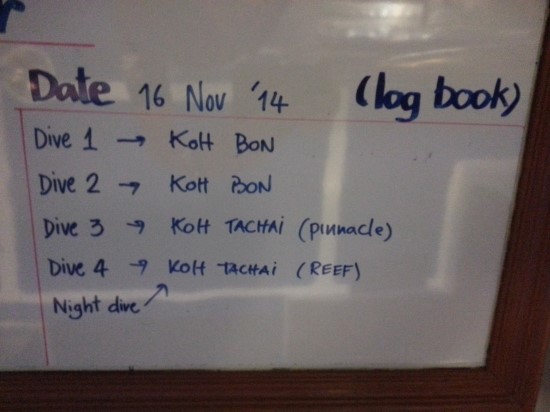 r
Date 16 Nov '14 (log book)
Dive 1 → KOH BON
Dive 2 → KOH BON
Dive 3 → KOH TACHAi (pinnacle)
Dive 4 → KOH TACHAi (REEF)
Night dive ↗